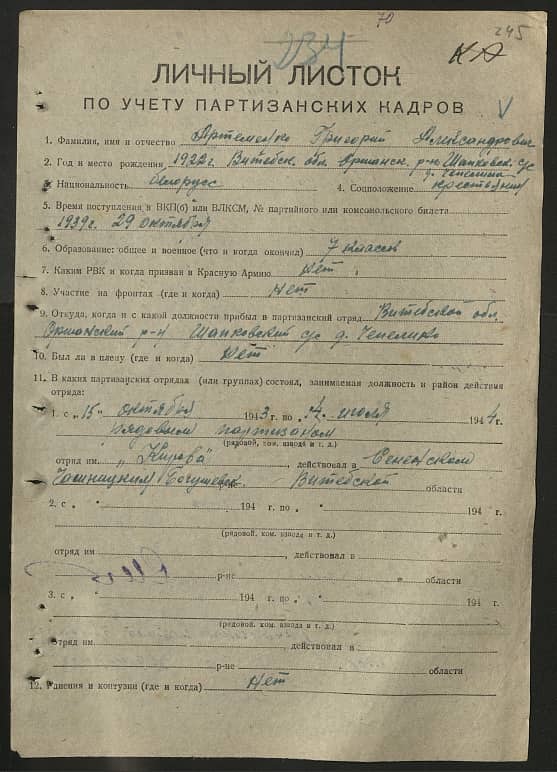 70
245
234
КА
ЛИЧНЫЙ ЛИСТОК
ПО УЧЕТУ ПАРТИЗАНСКИХ КАДРОВ
1. Фамилия, имя и отчество Артеменко Григорий Александрович
2. Год и место рождения 1922г. Витебск. обл. Оршанск. р-н Шапковск. с/с
д.
3. Национальность белорусс 4. Соцположение крестьянин
5. Время поступления в ВКП(б) или ВЛКСМ, № партийного или комсомольского билета
1939г. 29 октября
6. Образование: общее и военное (что и когда окончил) 7 классов
7. Каким РВК и когда призван в Красную Армию Нет
8. Участие на фронтах (где и когда) Нет
9. Откуда, когда и с какой должности прибыл в партизанский отряд Витебской обл.
Оршанский р-н Шапковский с/с д.
10. Был ли в плену (где и когда) Нет
11. В каких партизанских отрядах (или группах) состоял, занимаемая должность и район действия
отряда:
1. с „15" октября 1943 г. по июля 1944 г.
рядовым партизаном
(рядовой, ком. взвода и т. д.)
отряд им. „Кирова" , действовал в Сененском
Чашницким Богушевск. р-не Витебской области
2. с „ " 194 г. по „ " 194 г.
(рядовой, ком. взвода и т. д.)
отряд им. , действовал в
р-не области
3. с „ " 194 г. по „ " 194 г.
(рядовой, ком. взвода и т. д.)
отряд им. , действовал в
р-не области
12. Ранения и контузии (где и когда) Нет